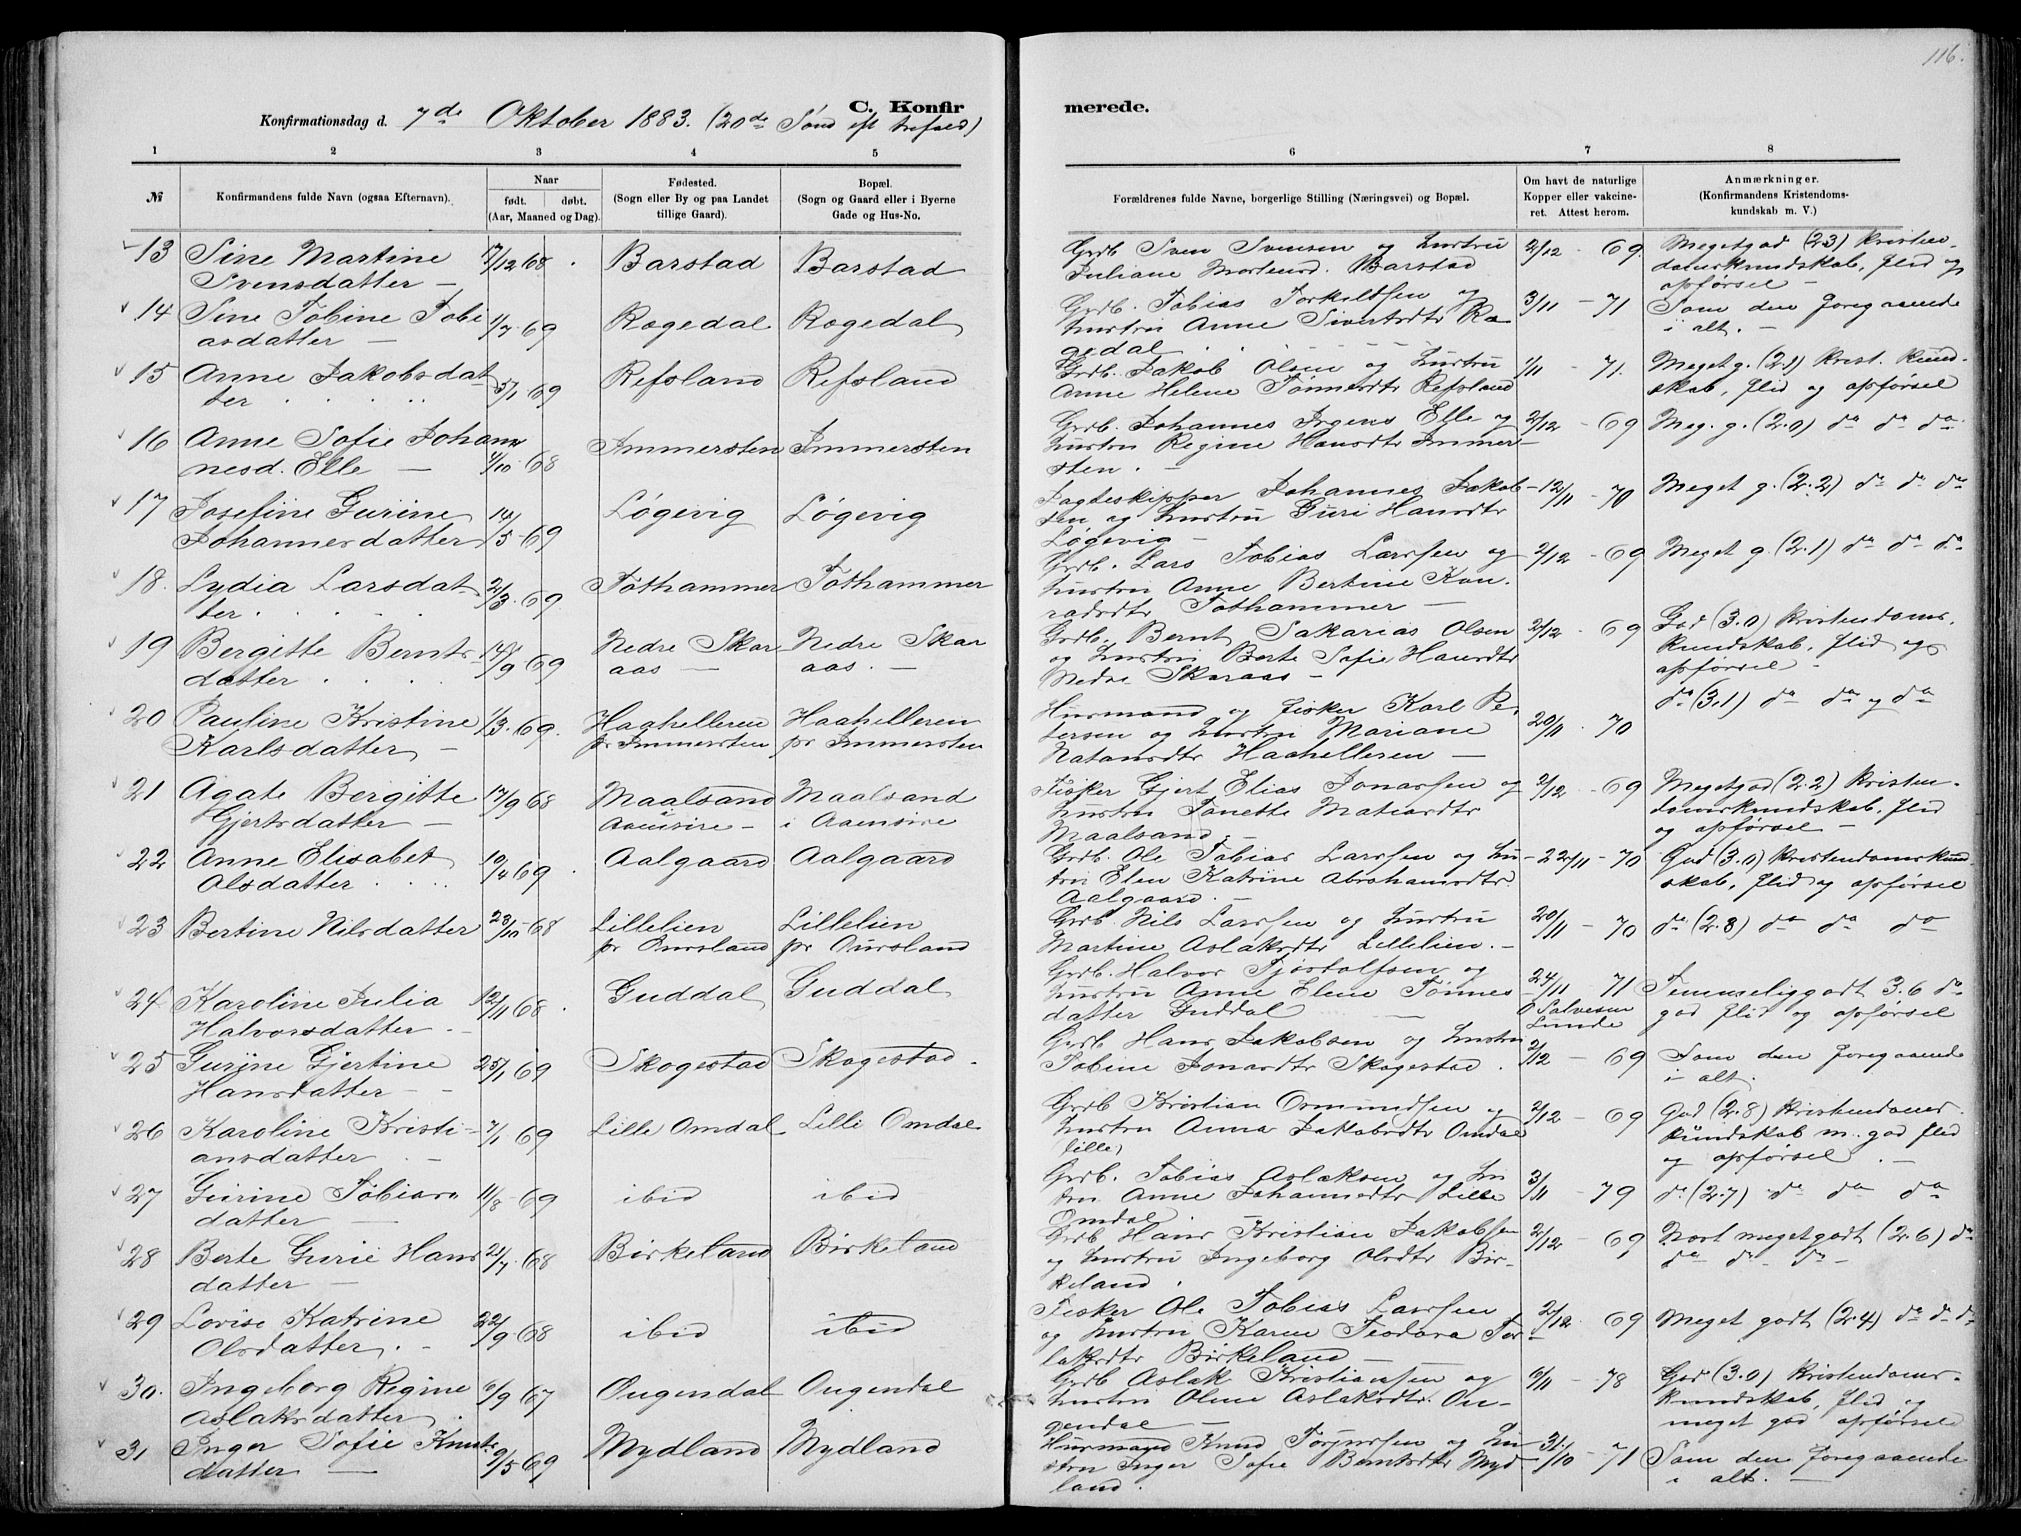 116.
C. Konfir merede.
Konfirmationsdag d. 7de Oktober 1883. (20de Sønd eft trefold)
1 2 3 4 5 6 7 8
№
Konfirmandens fulde Navn (ogsaa Efternavn).
Naar
født. døbt.
(Aar, Maaned og Dag).
Fødested.
(Sogn eller By og paa Landet
tillige Gaard).
Bopæl.
(Sogn og Gaard eller i Byerne
Gade og Hus-No.
Forældrenes fulde Navne, borgerlige Stilling (Næringsvei) og Bopæl.
Om havt de naturlige
Kopper eller vakcine-
ret. Attest herom.
Anmærkninger.
(Konfirmandens Kristendoms-
kundskab m. V.)
13 Sine Martine 7/12 68 Barstad Barstad Grdb Sven Svensen og Hustru 2/12 - 69. Megetgod (2.3) kristen-
Svensdatter — Juliane Mortensd. Barstad domskundskab, flid og
opførsel —
14 Sine Tobine Tobi 1/7 69 Rogedal Rogedal Grdb. Tobias Torkildsen og 3/11 - 71 Som den foregaaende
asdatter — Hustru Anne Sivertsdtr Ro i alt. —
gedal
15 Anne Jakobsdat 5/1 69 Refsland Refsland Grdb. Jakob Olsen og Hustru 1/11 - 71. Meget g. (2.1) krist. kund-
ter Anne Helene Tønnesdtr Refsland skab, flid og opførsel
16 Anne Sofie Johan 4/10 68 Immersten Immersten Grdb. Johannes Irgens Elle og 2/12 - 69 Meg. g. (2.0) do do do
nesd. Elle — Hustru Regine Hansdtr Immer-
sten. —
17 Josefine Gurine 14/5 69 Løgevig Løgevig Jagteskipper Johannes Jakob- 12/11 - 70 Meget g. (2.2) do do do
Johannesdatter sen og Hustru Guri Hansdtr
Løgevig —
18. Lydia Larsdat 2/3 69 Tothammer Tothammer Grdb. Lars Tobias Larssen og 2/12 - 69 Meget g. (2.1) do do do
ter. Hustru Anne Bertine Kon-
radsdtr Tothammer —
19 Bergitte Bernts 14/9 69 Nedre Skar Nedre Skar Grdb. Bernt Sakarias Olsen 2/12 - 69 God (3.0) Kristendoms
datter aas — aas. — og Hustru Berte Sofie Hansdtr kundskab, flid og
Nedre Skaraas — opførsel —
20 Pauline Kristine 1/3 69. Haahelleren Haahelleren Husmand og fisker Karl Pe- 20/11 70 do (3.1) do do og do
Karlsdatter — pr Immersten pr Immersten tersen og Hustru Mariane
Natansdtr Haahelleren —
21 Agate Bergitte 17/9 68 Maalsand Maalsand Fisker Gjert Elias Jonassen og 2/12 - 69 Megetgod (2.2) kristen-
Gjertsdatter — Aaensire — i Aaensire Hustru Tonette Matiasdtr domskundskab, flid
Maalsand. — og opførsel —
22 Anne Elisabet 10/4 69 Aalgaard Aalgaard Grdb. Ole Tobias Larssen og Hu- 22/11 - 70 God (3.0) kristendomskund
Olsdatter stru Elen Katrine Abrahamsdtr skab, flid og opførsel
Aalgaard. —
23 Bertine Nilsdatter 23/10 68 Lillelien Lillelien Grdb. Nils Larssen og Hustru 20/11 - 70 do (2.8) do do do
pr Oursland pr Oursland Martine Aslaksdtr Lillelien. —
24 Karoline Julia 12/11 68 Guddal Guddal Grdb. Halvor Tjostolfsen og 24/11 - 71 Temmeliggodt 3.6 do
Halvorsdatter — Hustru Anne Elene Tønnes O Salvesen god flid og opførsel
datter Guddal — Lunde
25 Gurine Gjertine 25/1 69 Skogestad Skogestad Grdb Hans Jakobsen og Hustru 2/12 - 69 Som den foregaaende
Hansdatter — Tobine Jonasdtr Skogestad. i alt.
26 Karoline Kristi- 7/1 69 Lille Omdal Lille Omdal Grdb Kristian Osmundsen og 2/12 - 69 God (2.8) kristendoms
ansdatter — Hustru Anna Jakobsdtr Omdal kundskab m. god flid
lille) og opførsel. —
27 Gurine Tobias 11/8 69 ibid ibid Grdb. Tobias Aslaksen og Hu 3/11 - 79 do (2.7) do do do
datter — stru Anne Johannesdtr Lille
Omdal.
28 Berte Gurie Hans 21/7 68 Birkeland Birkeland Grdb Hans Kristian Jakobsen 2/12 - 69 Nort megetgodt (2.6) do
datter — og Hustru Ingeborg Olsdtr Bir- do do do —
keland.
29 Lovise Katrine 22/9 68 ibid ibid Fisker Ole Tobias Larssen 2/12 69 Meget godt (2.4) do do do
Olsdatter. — og Hustru Karen Teodora Tor-
laksdtr Birkeland —
30. Ingeborg Regine 6/9 67 Ougendal Ougendal Grdb Aslak Kristiansen og 6/11 - 78 God (3.0) Kristendoms-
Aslaksdatter. Hustru Oline Aslaksdtr. Ou- kundskab, flid og
gendal — meget god opførsel
31 Inger Sofie Knuts 9/5 69 Mydland Mydland Husmand Knud Torjussen og Hu 31/10 - 71 Som den foregaaende
datter — stru Inger Sofie Berntsdtr Myd i alt. —
land.